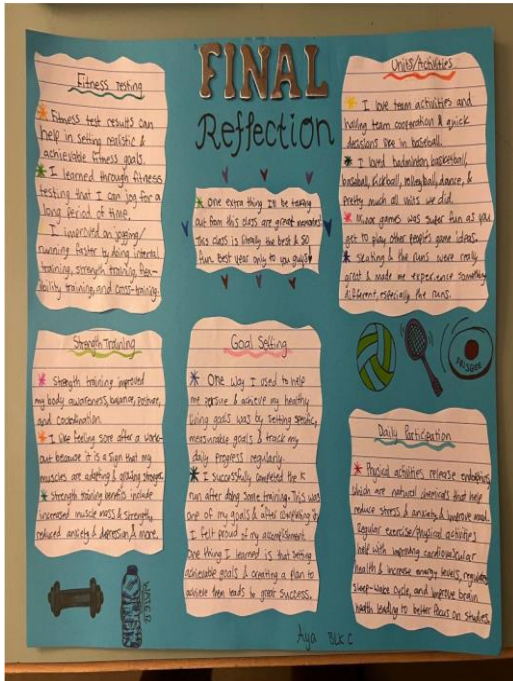 FINAL
Reflection
Fitness Testing
* Fitness test results can
help in setting realistic &
achievable fitness goals.
* I learned through fitness
testing that I can jog for a
long period of time.
I improved on jogging/
running faster by doing interval
training, strength training, flex-
ibility training, and cross-training.
* One extra thing I'll be taking
out from this class are great memories
this class is literally the best & so
fun. Best year only to you guys!
Units/Activities
* I love team activities and
having team cooperation & quick
decisions like in baseball.
* I loved badminton, basketball,
baseball, kickball, volleyball, dance, &
pretty much all units we did.
* Minor games was super fun as you
get to play other people's game ideas.
* Skating & the runs were really
great & made me experience something
different, especially the runs.
Strength Training
* Strength training improved
my body awareness, balance, posture,
and coordination.
* I like feeling sore after a work-
out because it is a sign that my
muscles are adapting & growing stronger.
* Strength training benefits include
increased muscle mass & strength,
reduced anxiety & depression & more.
Goal Setting
* One way I used to help
me persue & achieve my healthy
living goals was by setting specific,
measurable goals & track my
daily progress regularly.
* I successfully completed the
run after doing some training. This was
one of my goals & after completing it
I felt proud of my accomplishment.
One thing I learned is that setting
achievable goals & creating a plan to
achieve them leads to great success.
FRISBEE
Daily Participation
* Physical activities release endorphins,
which are natural chemicals that help
reduce stress & anxiety & improve mood.
Regular exercise/physical activities
help with improving cardiovascular
health & increase energy levels, regulate
sleep-wake cycle, and improve brain
health leading to better focus on studies.
WATER
Aya BLK C